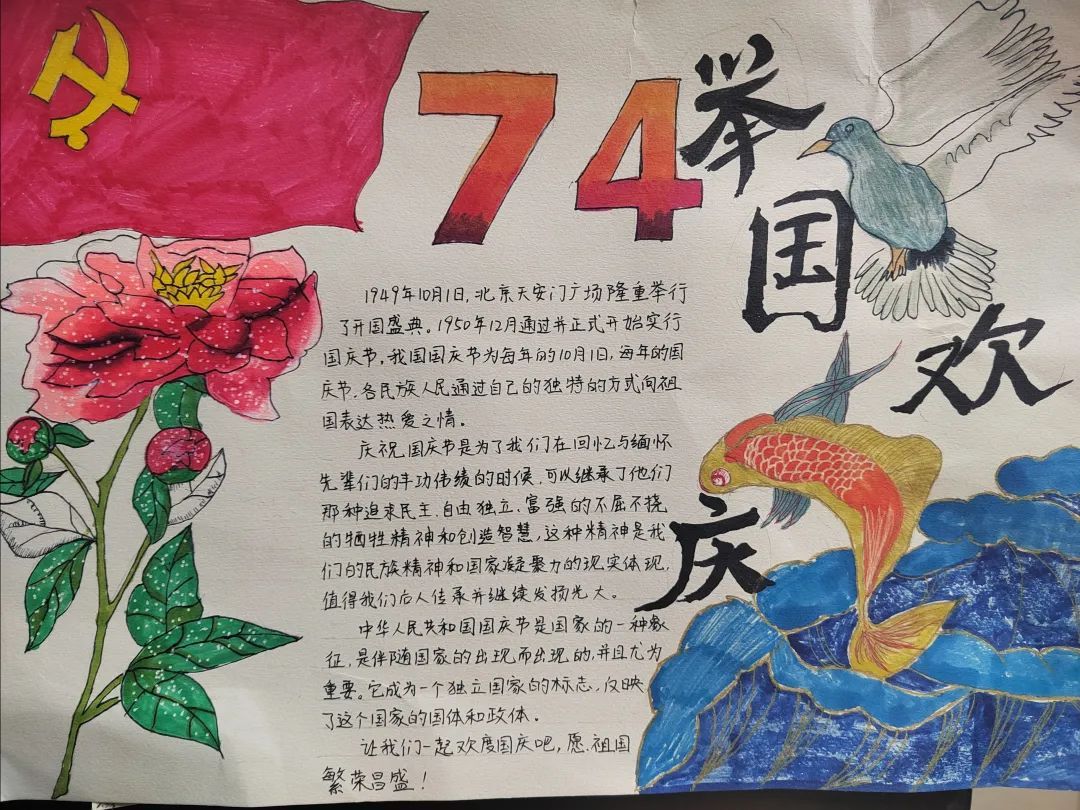 74
举国欢庆
1949年10月1日,北京天安门广场隆重举行
了开国盛典。1950年12月通过并正式开始实行
国庆节,我国国庆节为每年的10月1日,每年的国
庆节,各民族人民通过自己的独特的方式向祖
国表达热爱之情。
庆祝国庆节是为了我们在回忆与缅怀
先辈们的丰功伟绩的时候,可以继承了他们
那种追求民主、自由独立、富强的不屈不挠
的牺牲精神和创造智慧,这种精神是我
们的民族精神和国家凝聚力的现实体现,
值得我们后人传承并继续发扬光大。
中华人民共和国国庆节是国家的一种象
征,是伴随国家的出现而出现的,并且尤为
重要。它成为一个独立国家的标志,反映
了这个国家的国体和政体。
让我们一起欢度国庆吧,愿祖国
繁荣昌盛!